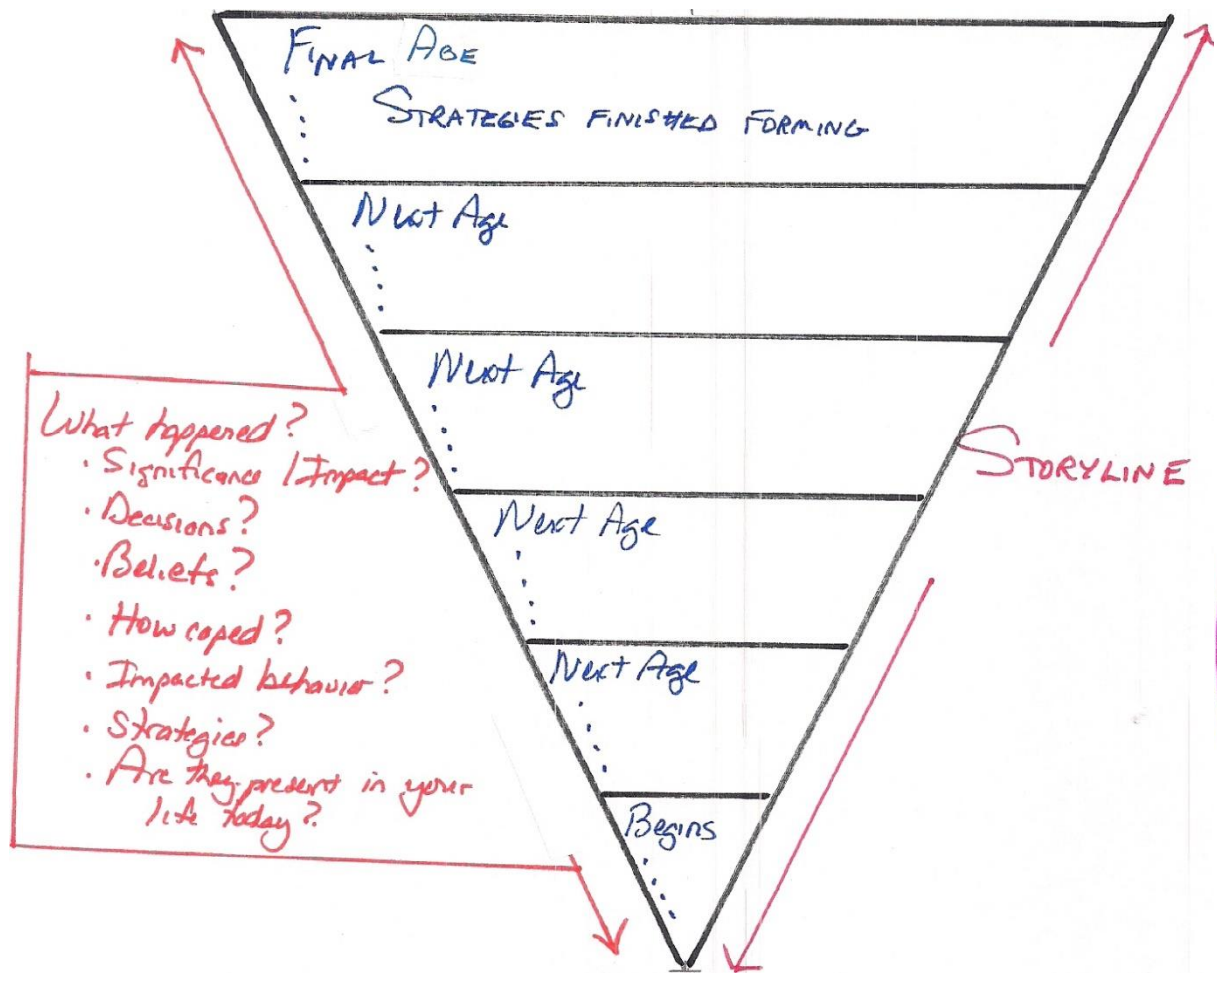 FINAL AGE
STRATEGIES FINISHED FORMING
Next Age
Next Age
Next Age
Next Age
Begins
What happened?
· Significance / Impact?
· Decisions?
· Beliefs?
· How coped?
· Impacted behavior?
· Strategies?
· Are they present in your
life today?
STORYLINE